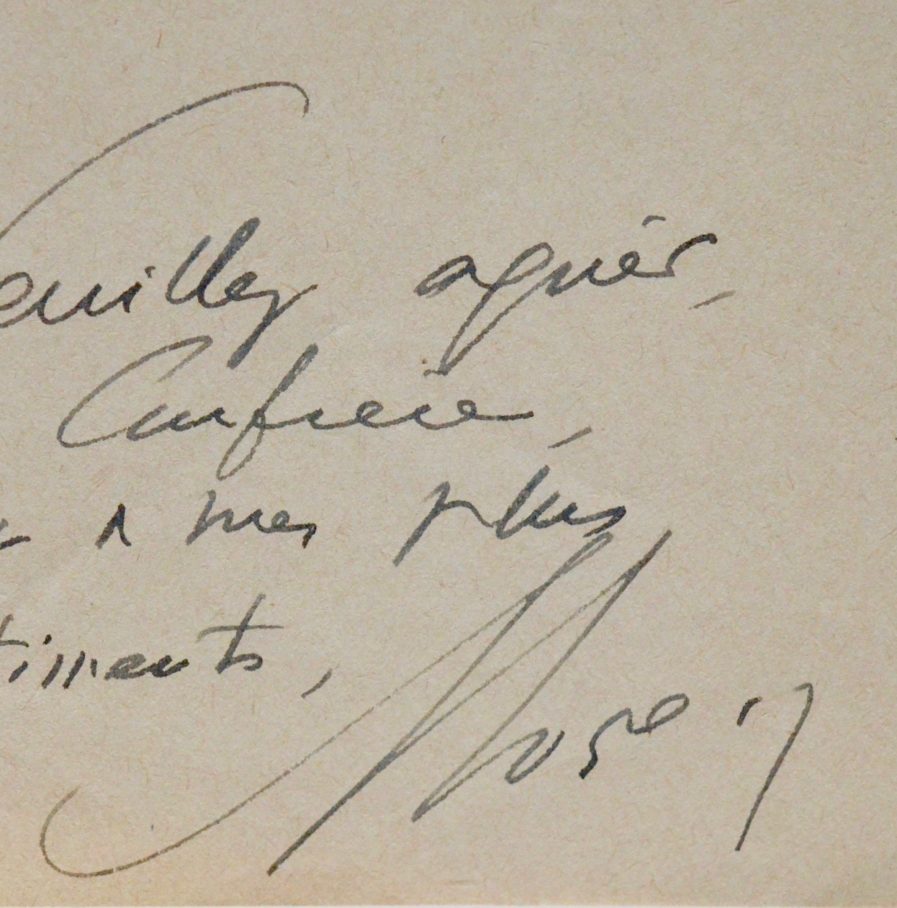 euillez agréer,
Confrère,
à mes plus
timents,